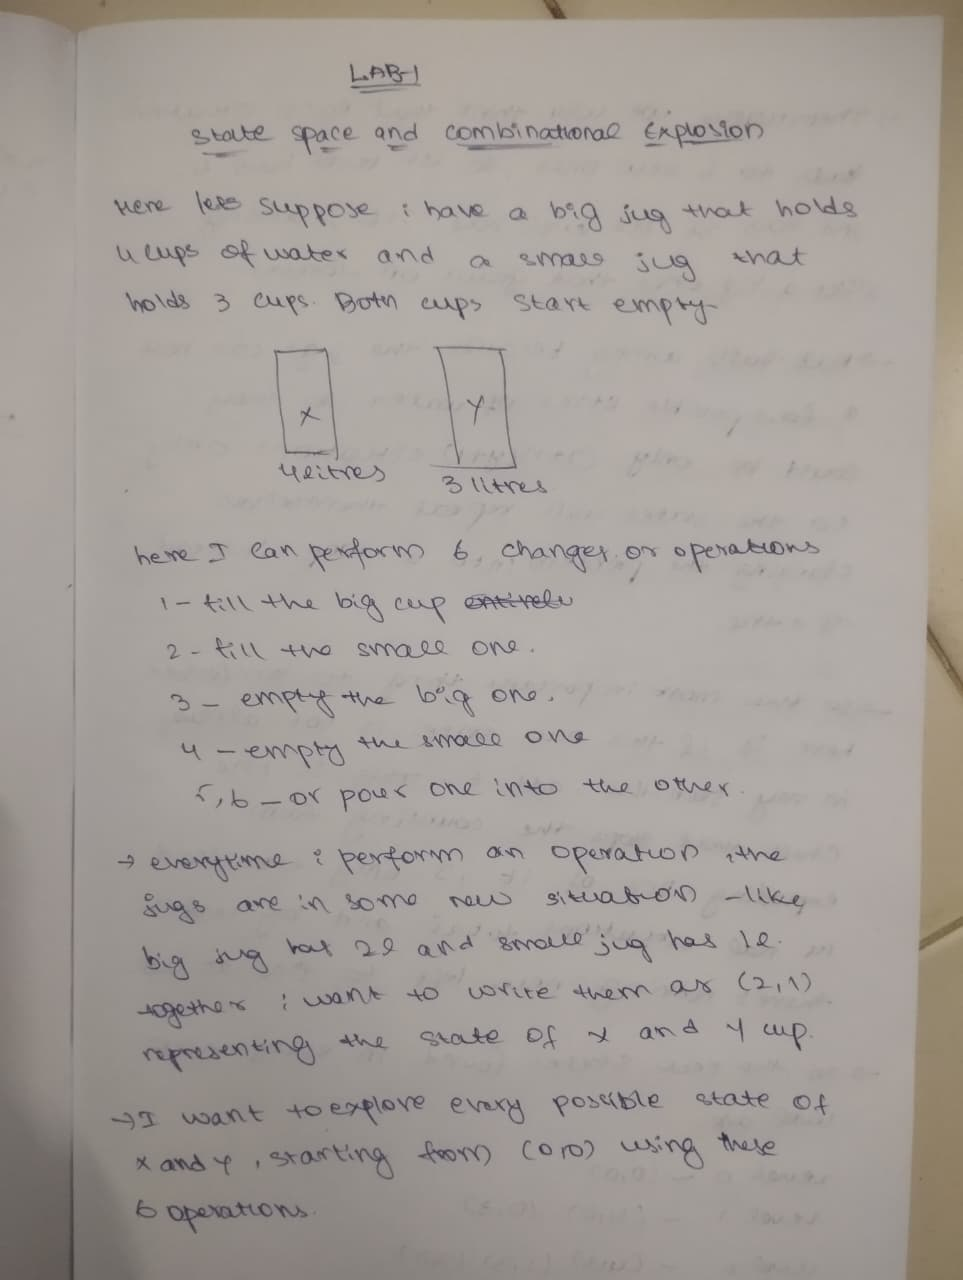 LAB-1
State space and combinational Explosion
Here lets suppose i have a big jug that holds
4 cups of water and a small jug that
holds 3 cups. Both cups start empty.
X Y
4 litres 3 litres
here I can perform 6 changes or operations
1 - fill the big cup entirely
2 - fill the small one.
3 - empty the big one.
4 - empty the small one
5,6 - or pour one into the other.
→ everytime i perform an operation, the
jugs are in some new situation - like
big jug has 2l and small jug has 1l.
together i want to write them as (2,1)
representing the state of x and y cup.
→ I want to explore every possible state of
x and y, starting from (0,0) using these
6 operations.